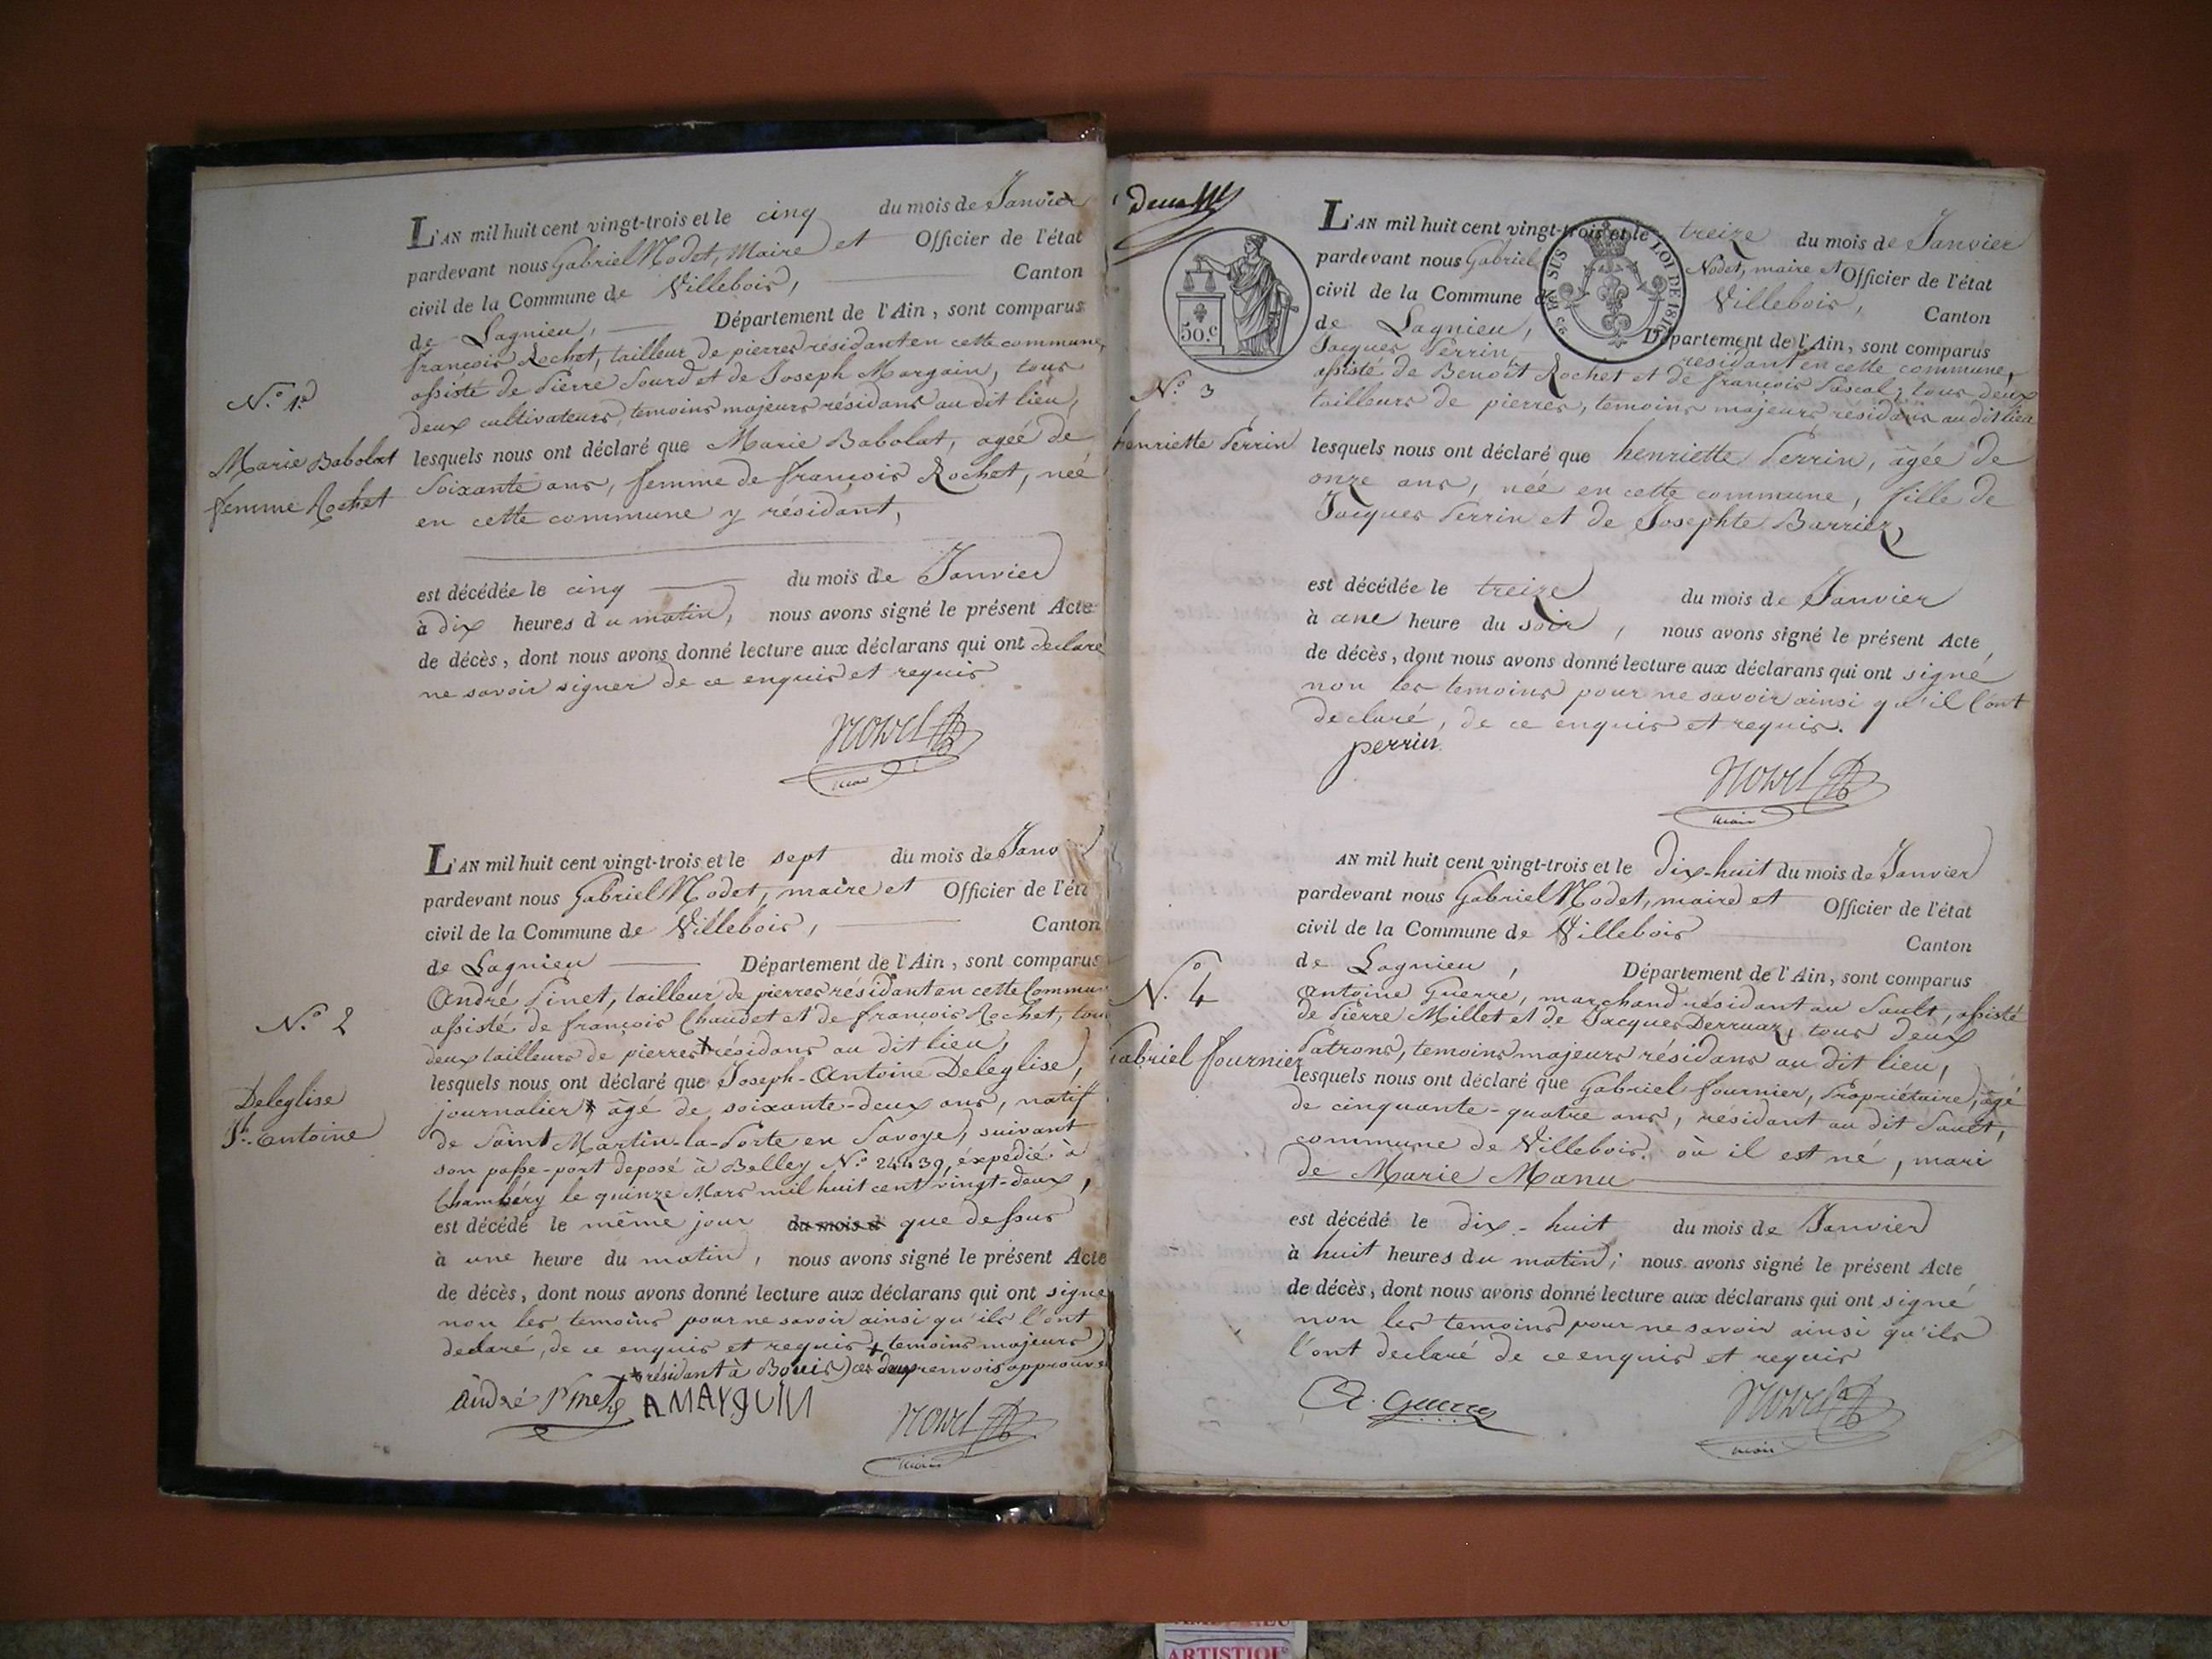 L'AN mil huit cent vingt-trois et le cinq du mois de Janvier
pardevant nous Gabriel Nodet, Maire et Officier de l'état
civil de la Commune de Villebois, Canton
de Lagnieu, Département de l'Ain, sont comparus
françois Rochet, tailleur de pierres résidant en cette commune,
assisté de Pierre Sourd et de Joseph Margain, tous
deux cultivateurs, temoins majeurs résidans au dit lieu,
N.º 1.er
Marie Babolat
femme Rochet
lesquels nous ont déclaré que Marie Babolat, agée de
Soixante ans, femme de françois Rochet, neé
en cette commune y résidant,
est décédée le cinq du mois de Janvier
à dix heures du matin, nous avons signé le présent Acte
de décès, dont nous avons donné lecture aux déclarans qui ont declaré
ne savoir signer de ce enquis et requis
Nodet
maire
L'AN mil huit cent vingt-trois et le sept du mois de Janv
pardevant nous Gabriel Nodet, maire et Officier de l'éta
civil de la Commune de Villebois, Canton
de Lagnieu Département de l'Ain, sont comparus
André Pinet, tailleur de pierres résidant en cette Commun
assisté de françois Chaudet et de françois Rochet, tou
deux tailleurs de pierres + résidans au dit lieu,
N.º 2
Deleglise
J.h antoine
lesquels nous ont déclaré que Joseph-Antoine Deleglise,
journalier * âgé de soixante-deux ans, natif
de Saint Martin-la-Porte en Savoye, suivant
son passe-port deposé à Belley N.º 24439, éxpedié à
Chambéry le quinze Mars mil huit cent vingt-deux,
est décédé le même jour du mois d que dessus
à une heure du matin, nous avons signé le présent Acte
de décès, dont nous avons donné lecture aux déclarans qui ont signe
non les temoins pour ne savoir ainsi qu'ils l'ont
declaré, de ce enquis et requis + temoins majeurs
* résidant à Bouis) ces deux renvois approuve
André Pinet A MAYGUIN
Nodet
maire
deux
50.c
EN SUS LOI DE 1816
L'AN mil huit cent vingt-trois et le treize du mois de Janvier
pardevant nous Gabriel Nodet, maire et Officier de l'état
civil de la Commune d Villebois, Canton
de Lagnieu, Département de l'Ain, sont comparus
Jacques Perrin résidant en cette commune,
assisté de Benoit Rochet et de françois Pascal, tous deux
tailleurs de pierres, temoins majeurs résidans au dit lieu
N.º 3
henriette Perrin
lesquels nous ont déclaré que henriette Perrin, âgée de
onze ans, neé en cette commune, fille de
Jacques Perrin et de Josephte Barriez,
est décédée le treize du mois de Janvier
à une heure du soir, nous avons signé le présent Acte
de décès, dont nous avons donné lecture aux déclarans qui ont signé
non les temoins pour ne savoir ainsi qu'il l'ont
declaré, de ce enquis et requis.
perrin
Nodet
maire
AN mil huit cent vingt-trois et le dix-huit du mois de Janvier
pardevant nous Gabriel Nodet, maire et Officier de l'état
civil de la Commune de Villebois Canton
de Lagnieu, Département de l'Ain, sont comparus
antoine Guerre, marchand résidant au Sault, assisté
de Pierre Millet et de Jacques Derruaz, tous deux
Patrons, temoins majeurs résidans au dit lieu,
N.º 4
Gabriel fournier
lesquels nous ont déclaré que Gabriel fournier, Propriétaire, âgé
de cinquante-quatre ans, résidant au dit Sault,
commune de Villebois où il est né, mari
de Marie Manu
est décédé le dix-huit du mois de Janvier
à huit heures du matin; nous avons signé le présent Acte
de décès, dont nous avons donné lecture aux déclarans qui ont signé
non les temoins pour ne savoir ainsi qu'ils
l'ont declaré de ce enquis et requis
A. Guerre
Nodet
maire
ARTISTIQUE